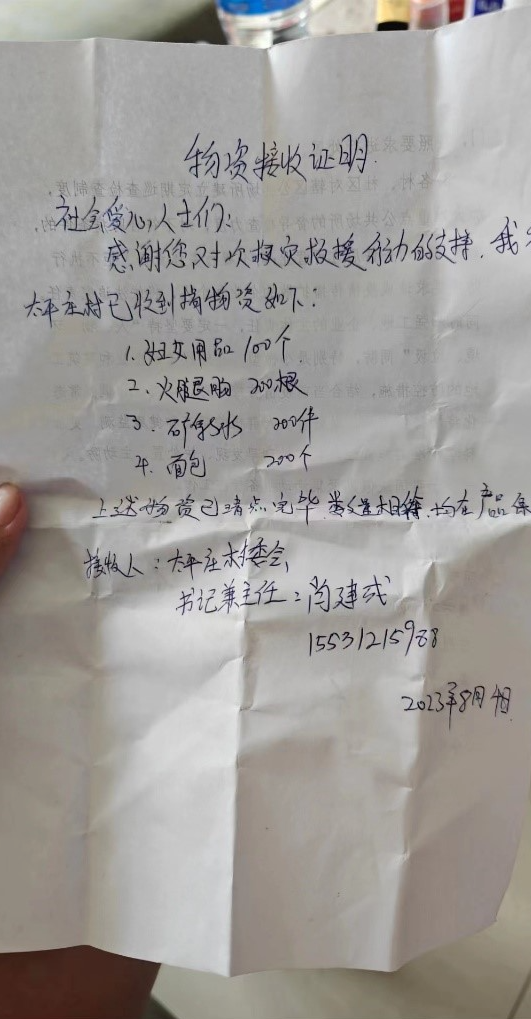 物资接收证明
社会爱心人士们:
感谢您对次救灾救援行动的支持。我
太平庄村已收到捐物资如下:
1. 妇女用品 100个
2、火腿肠 200根
3. 矿泉水 200件
4. 面包 200个
上述物资已清点完毕 数量相符.均在产品保
接收人:太平庄村委会
书记兼主任:肖建成
15531215988
2023年8月4日